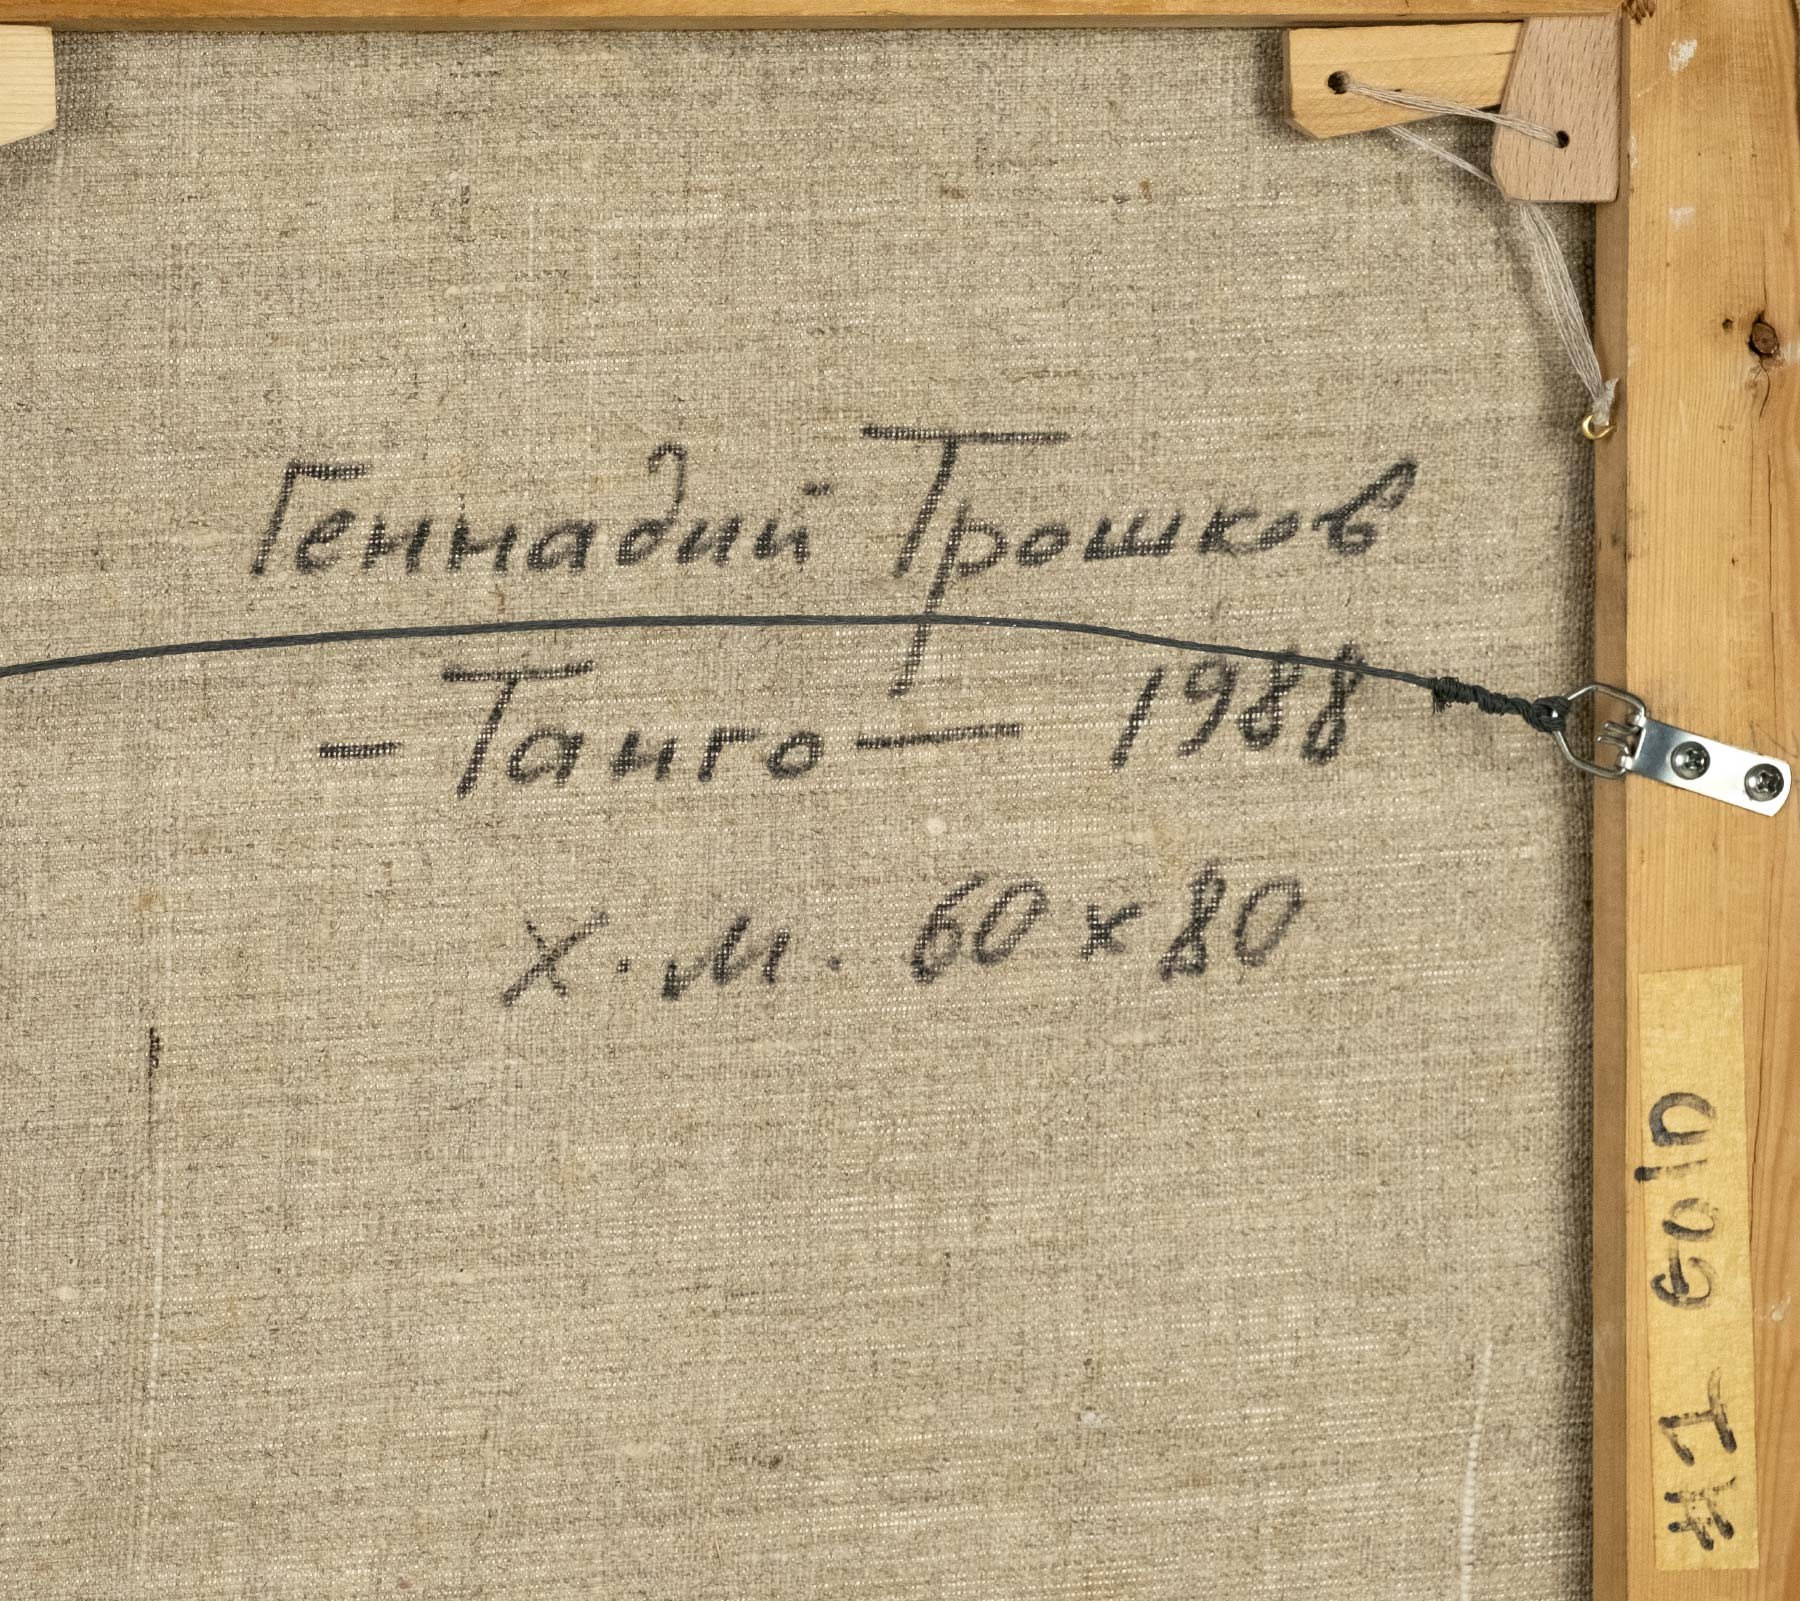 Геннадий Трошков
- Танго - 1988
х.м. 60 x 80
#1 Gold